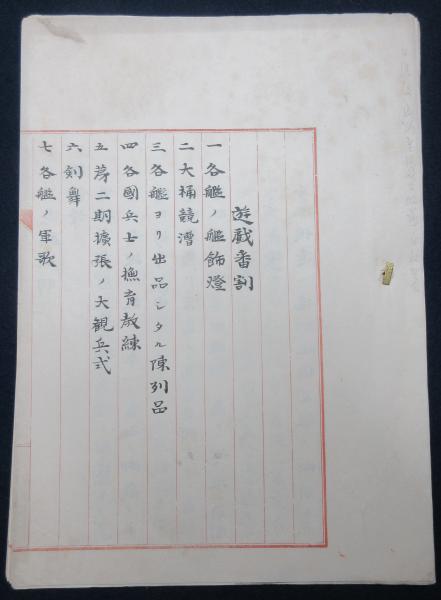 遊戯番割
一各艦ノ艦飾燈
二大桶競漕
三各艦ヨリ出品シタル陳列品
四各國兵士ノ撫育教練
五第二期擴張ノ大観兵式
六剣舞
七各艦ノ軍歌